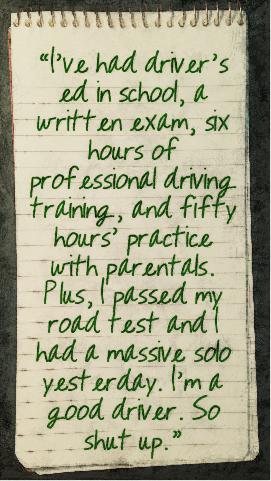 “I’ve had driver’s
ed in school, a
written exam, six
hours of
professional driving
training, and fifty
hours’ practice
with parentals.
Plus, I passed my
road test and I
had a massive solo
yesterday. I’m a
good driver. So
shut up.”